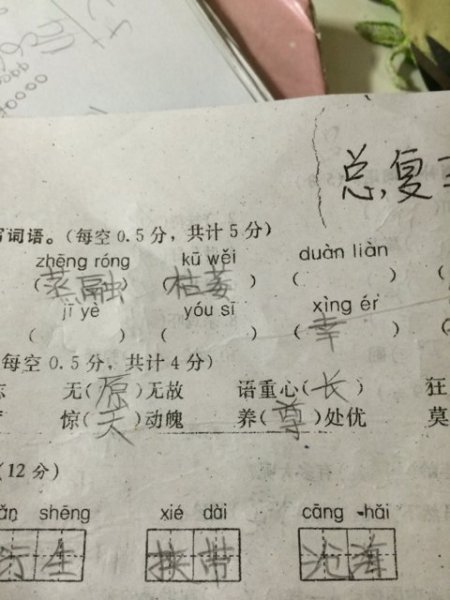 总复
写词语。(每空 0.5 分，共计 5 分)
zhēng róng kū wěi duàn liàn
(蒸融) (枯萎) ( ) (
jì yè yóu sī xìng ér
( ) ( ) (幸 ) (
(每空 0.5 分，共计 4 分)
无(原)无故 语重心(长) 狂
惊(天)动魄 养(尊)处优 莫
(12 分)
ǎn shēng xié dài cāng hǎi
衍生 挟带 沧海